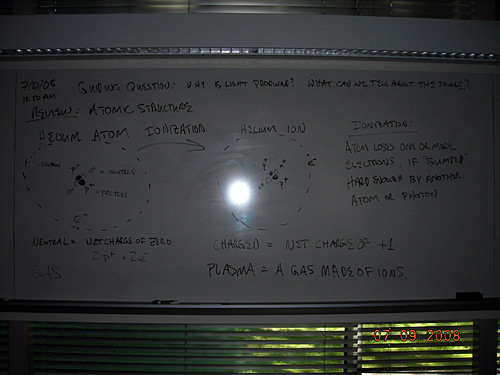 7/9/08 GUIDING QUESTION: WHY IS LIGHT PRODUCED? WHAT CAN WE TELL ABOUT THE SOURCE?
11:50 AM
REVIEW: ATOMIC STRUCTURE
HELIUM ATOM IONIZATION HELIUM ION
IONIZATION:
ATOM LOSES ONE OR MORE
ELECTRONS, IF "BUMPED"
HARD ENOUGH BY ANOTHER
ATOM OR PHOTON
= NEUTRON
= PROTONS
e-
e-
NEUTRAL = NET CHARGE OF ZERO
2p+ + 2e-
GAS
CHARGED = NET CHARGE OF +1
PLASMA = A GAS MADE OF IONS
07 09 2008